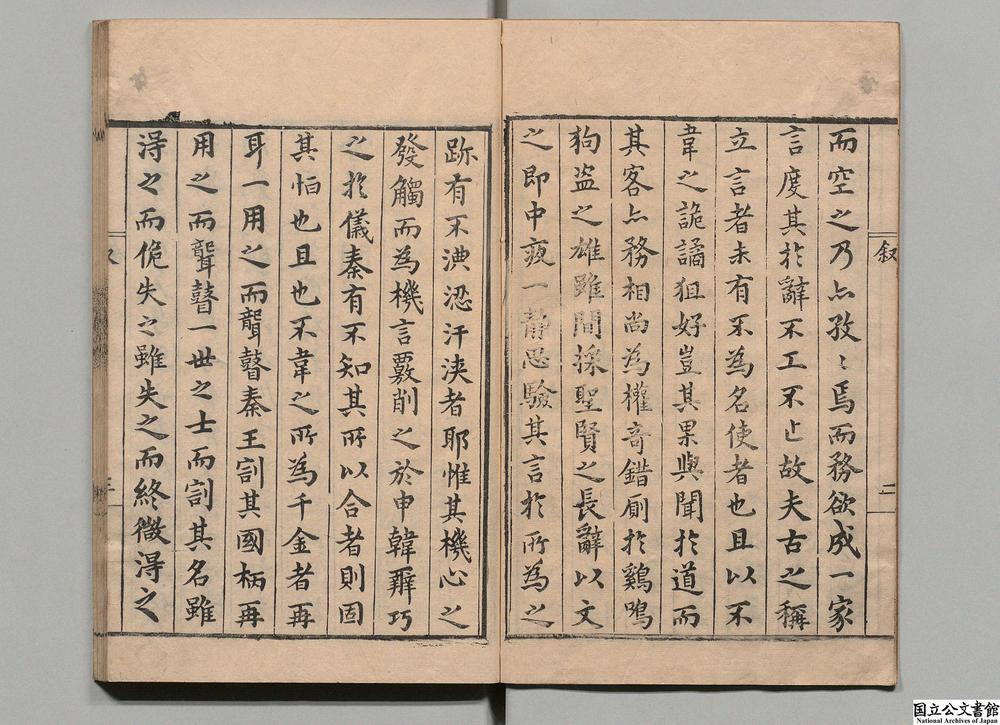 叙
二
而空之乃亦孜〻焉而務欲成一家
言度其於辭不工不止故夫古之稱
立言者未有不為名使者也且以不
韋之詭譎狙好豈其果與聞於道而
其客亦務相尚為權奇錯廁於鷄鳴
狗盗之雄雖間採聖賢之長辭以文
之即中夜一静思驗其言於所為之
跡有不淟涊汗浹者耶惟其機心之
發觸而為機言覈削之於申韓辭巧
之於儀秦有不知其所以合者則固
其怕也且也不韋之所為千金者再
耳一用之而聾瞽秦王割其國柄再
用之而聾瞽一世之士而割其名雖
淂之而佹失之雖失之而終微淂之
三
国立公文書館
National Archives of Japan